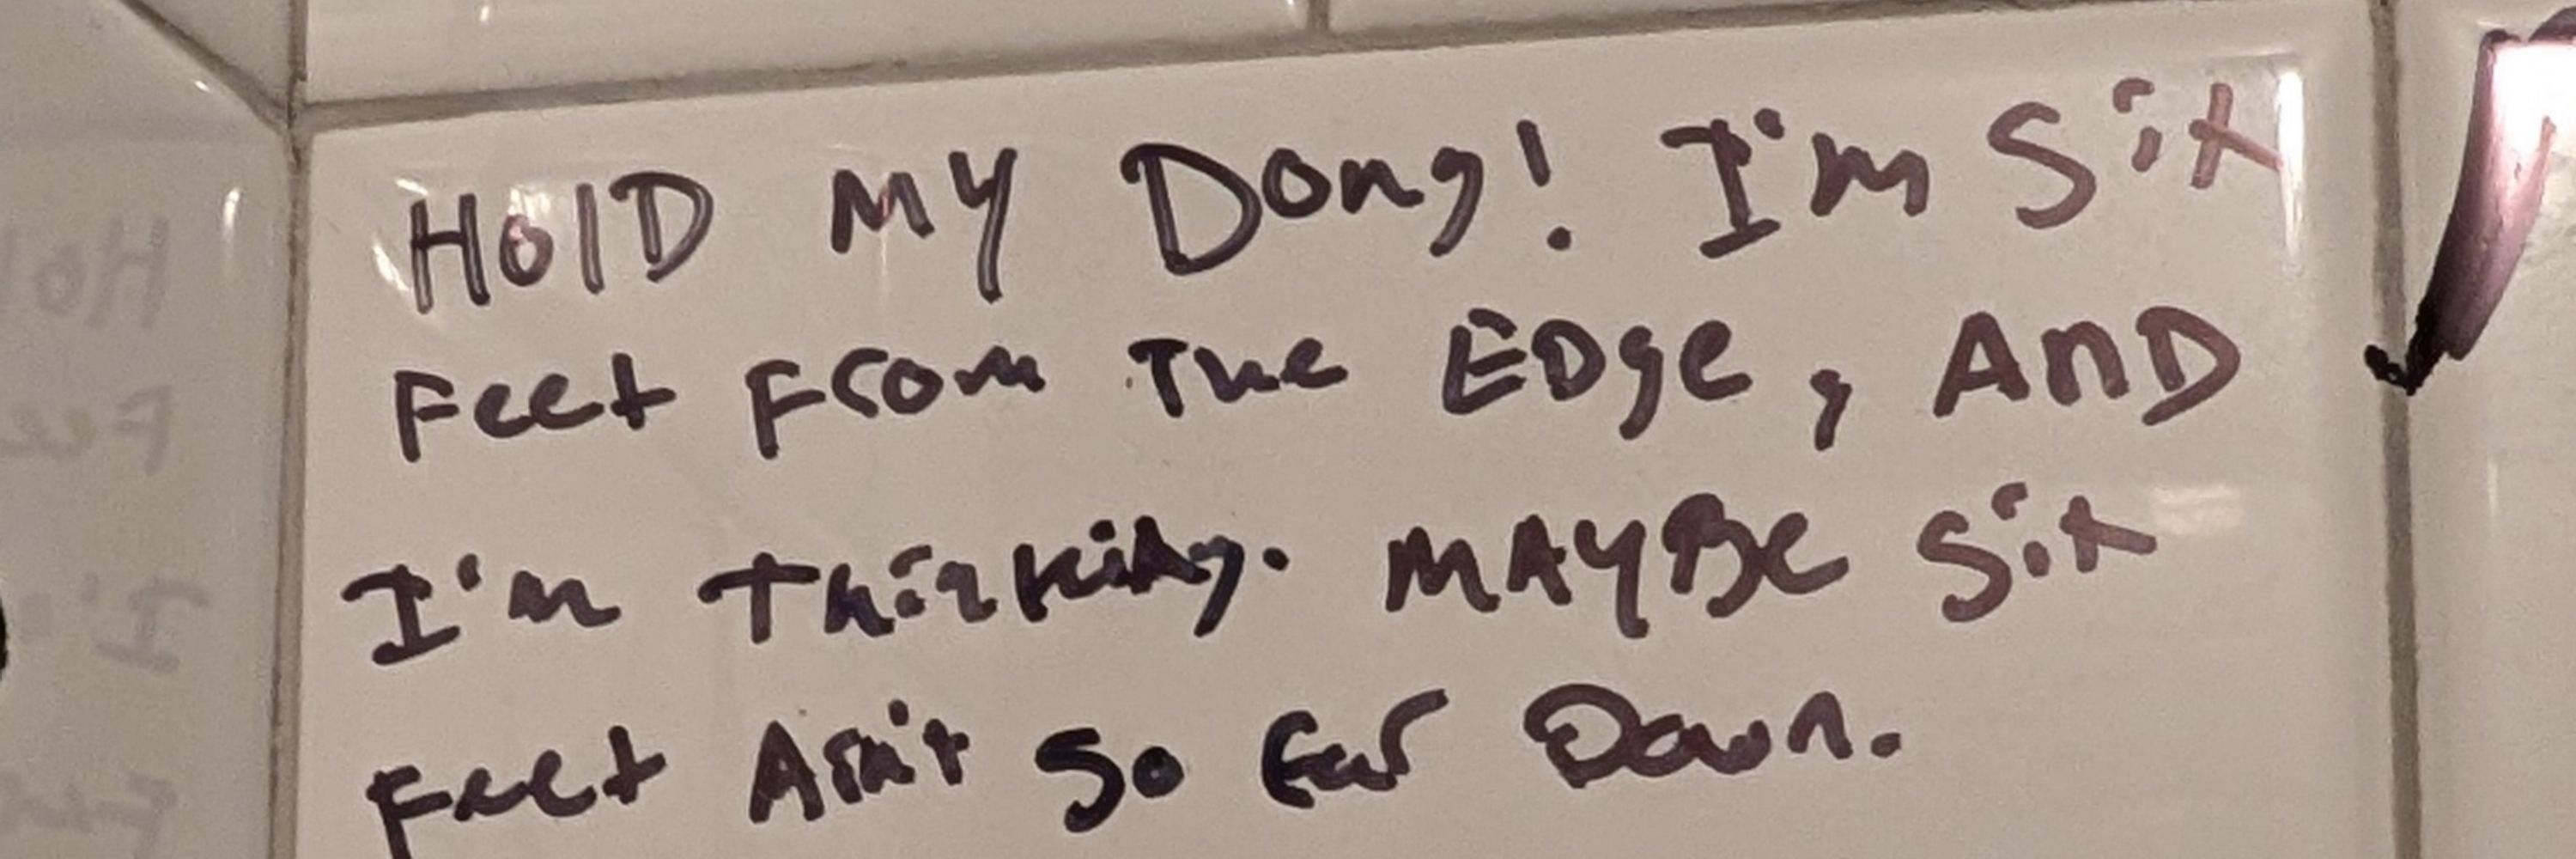 HOlD MY Dong! I'm Six
Feet From The EDge, AnD
I'm Thinking. MAYBe Six
Feet Ain't So Far Down.